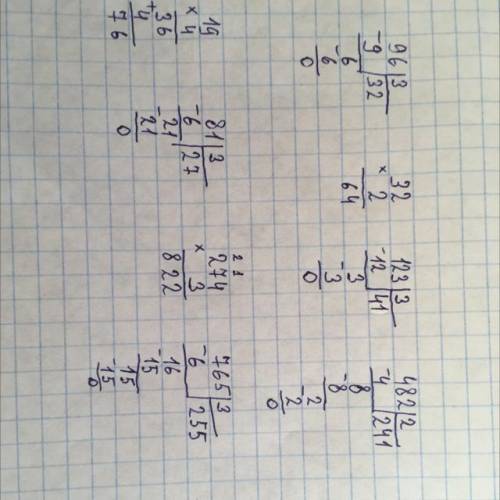 96|3
-9 32
-6
6
0
32
× 2
64
123|3
-12 41
-3
3
0
482|2
-4 241
8
-8
-2
2
0
19
× 4
36
+4
76
81|3
-6 27
-21
21
0
2 1
274
× 3
822
765|3
-6 255
16
-15
-15
15
0